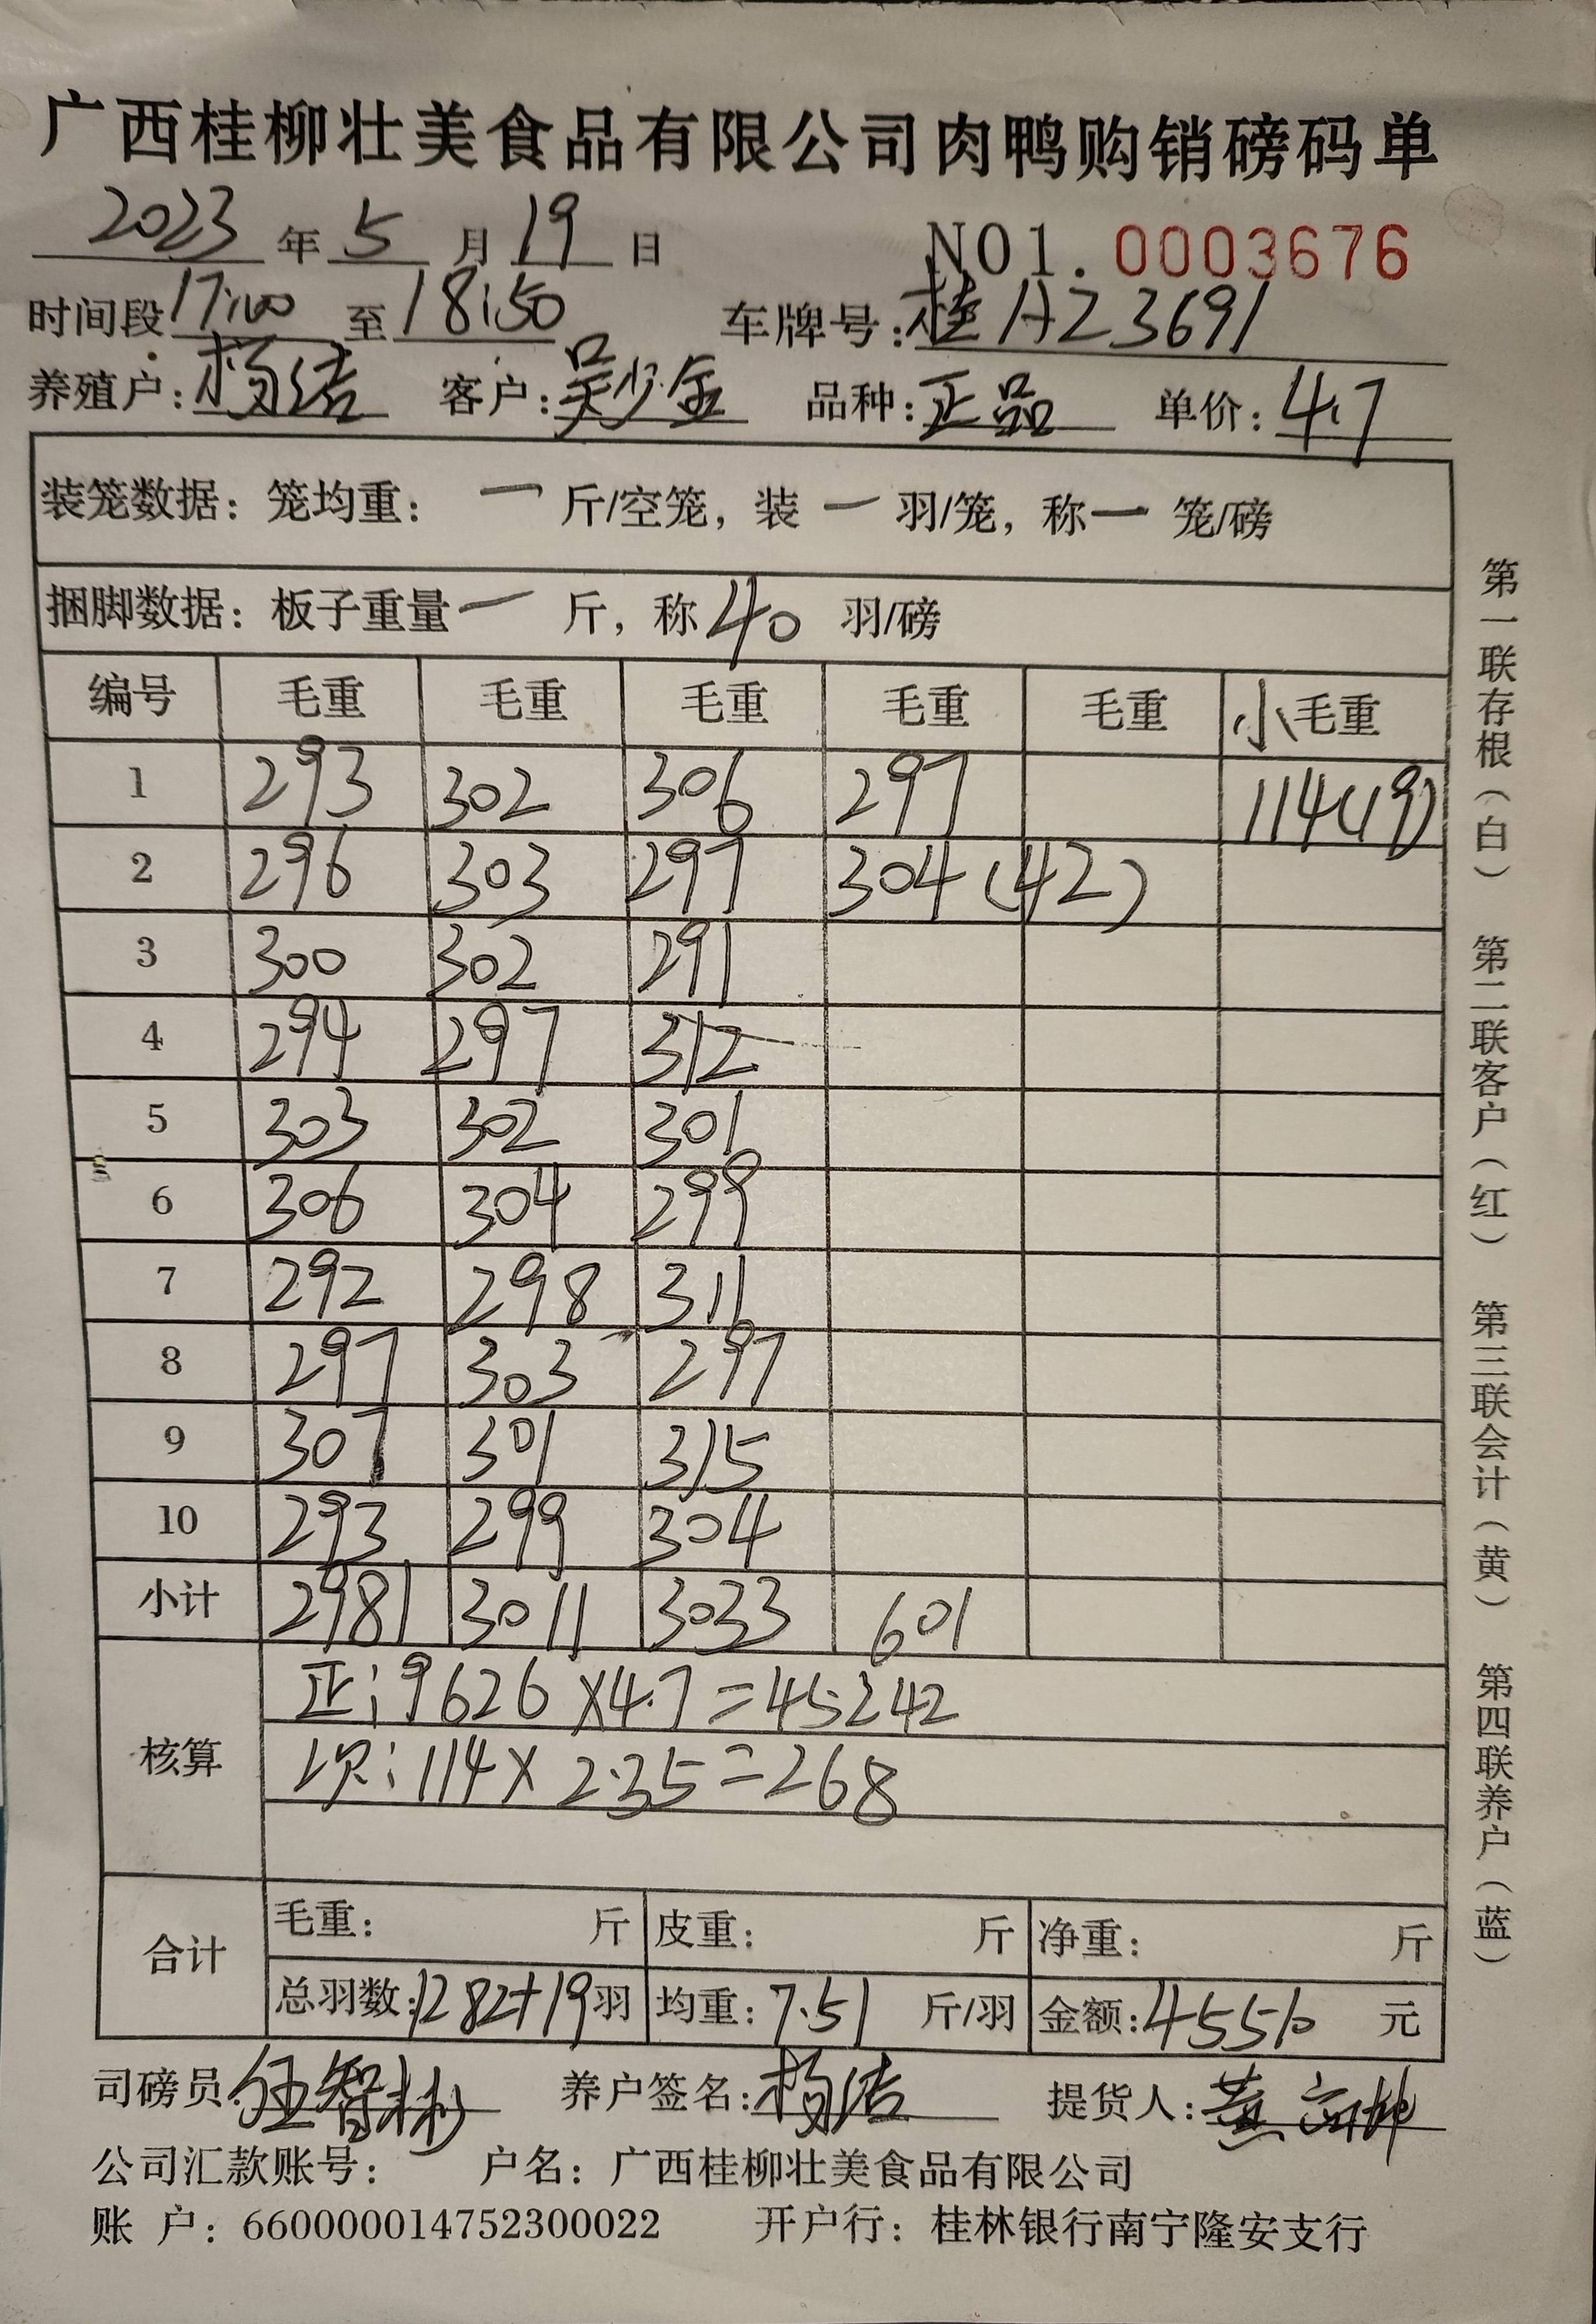 广西桂柳壮美食品有限公司肉鸭购销磅码单
2023 年 5 月 19 日 NO1. 0003676
时间段 17:00 至 18:50 车牌号: 桂AZ3691
养殖户: 杨洁 客户: 吴少金 品种: 正品 单价: 4.7
装笼数据: 笼均重: 一 斤/空笼, 装 一 羽/笼, 称 一 笼/磅
捆脚数据: 板子重量 一 斤, 称 40 羽/磅
编号 毛重 毛重 毛重 毛重 毛重 小毛重
1 293 302 306 297 114(19)
2 296 303 297 304(42)
3 300 302 291
4 294 297 312
5 303 302 301
6 306 304 299
7 292 298 311
8 297 303 297
9 307 301 315
10 293 299 304
小计 2981 3011 3033 601
核算 正:9626×4.7=45242
次:114×2.35=268
合计 毛重: 斤 皮重: 斤 净重: 斤
总羽数: 1282+19 羽 均重: 7.51 斤/羽 金额: 45510 元
司磅员 伍智彬 养户签名: 杨洁 提货人: 黄
公司汇款账号: 户名: 广西桂柳壮美食品有限公司
账 户: 660000014752300022 开户行: 桂林银行南宁隆安支行
第一联存根(白) 第二联客户(红) 第三联会计(黄) 第四联养户(蓝)